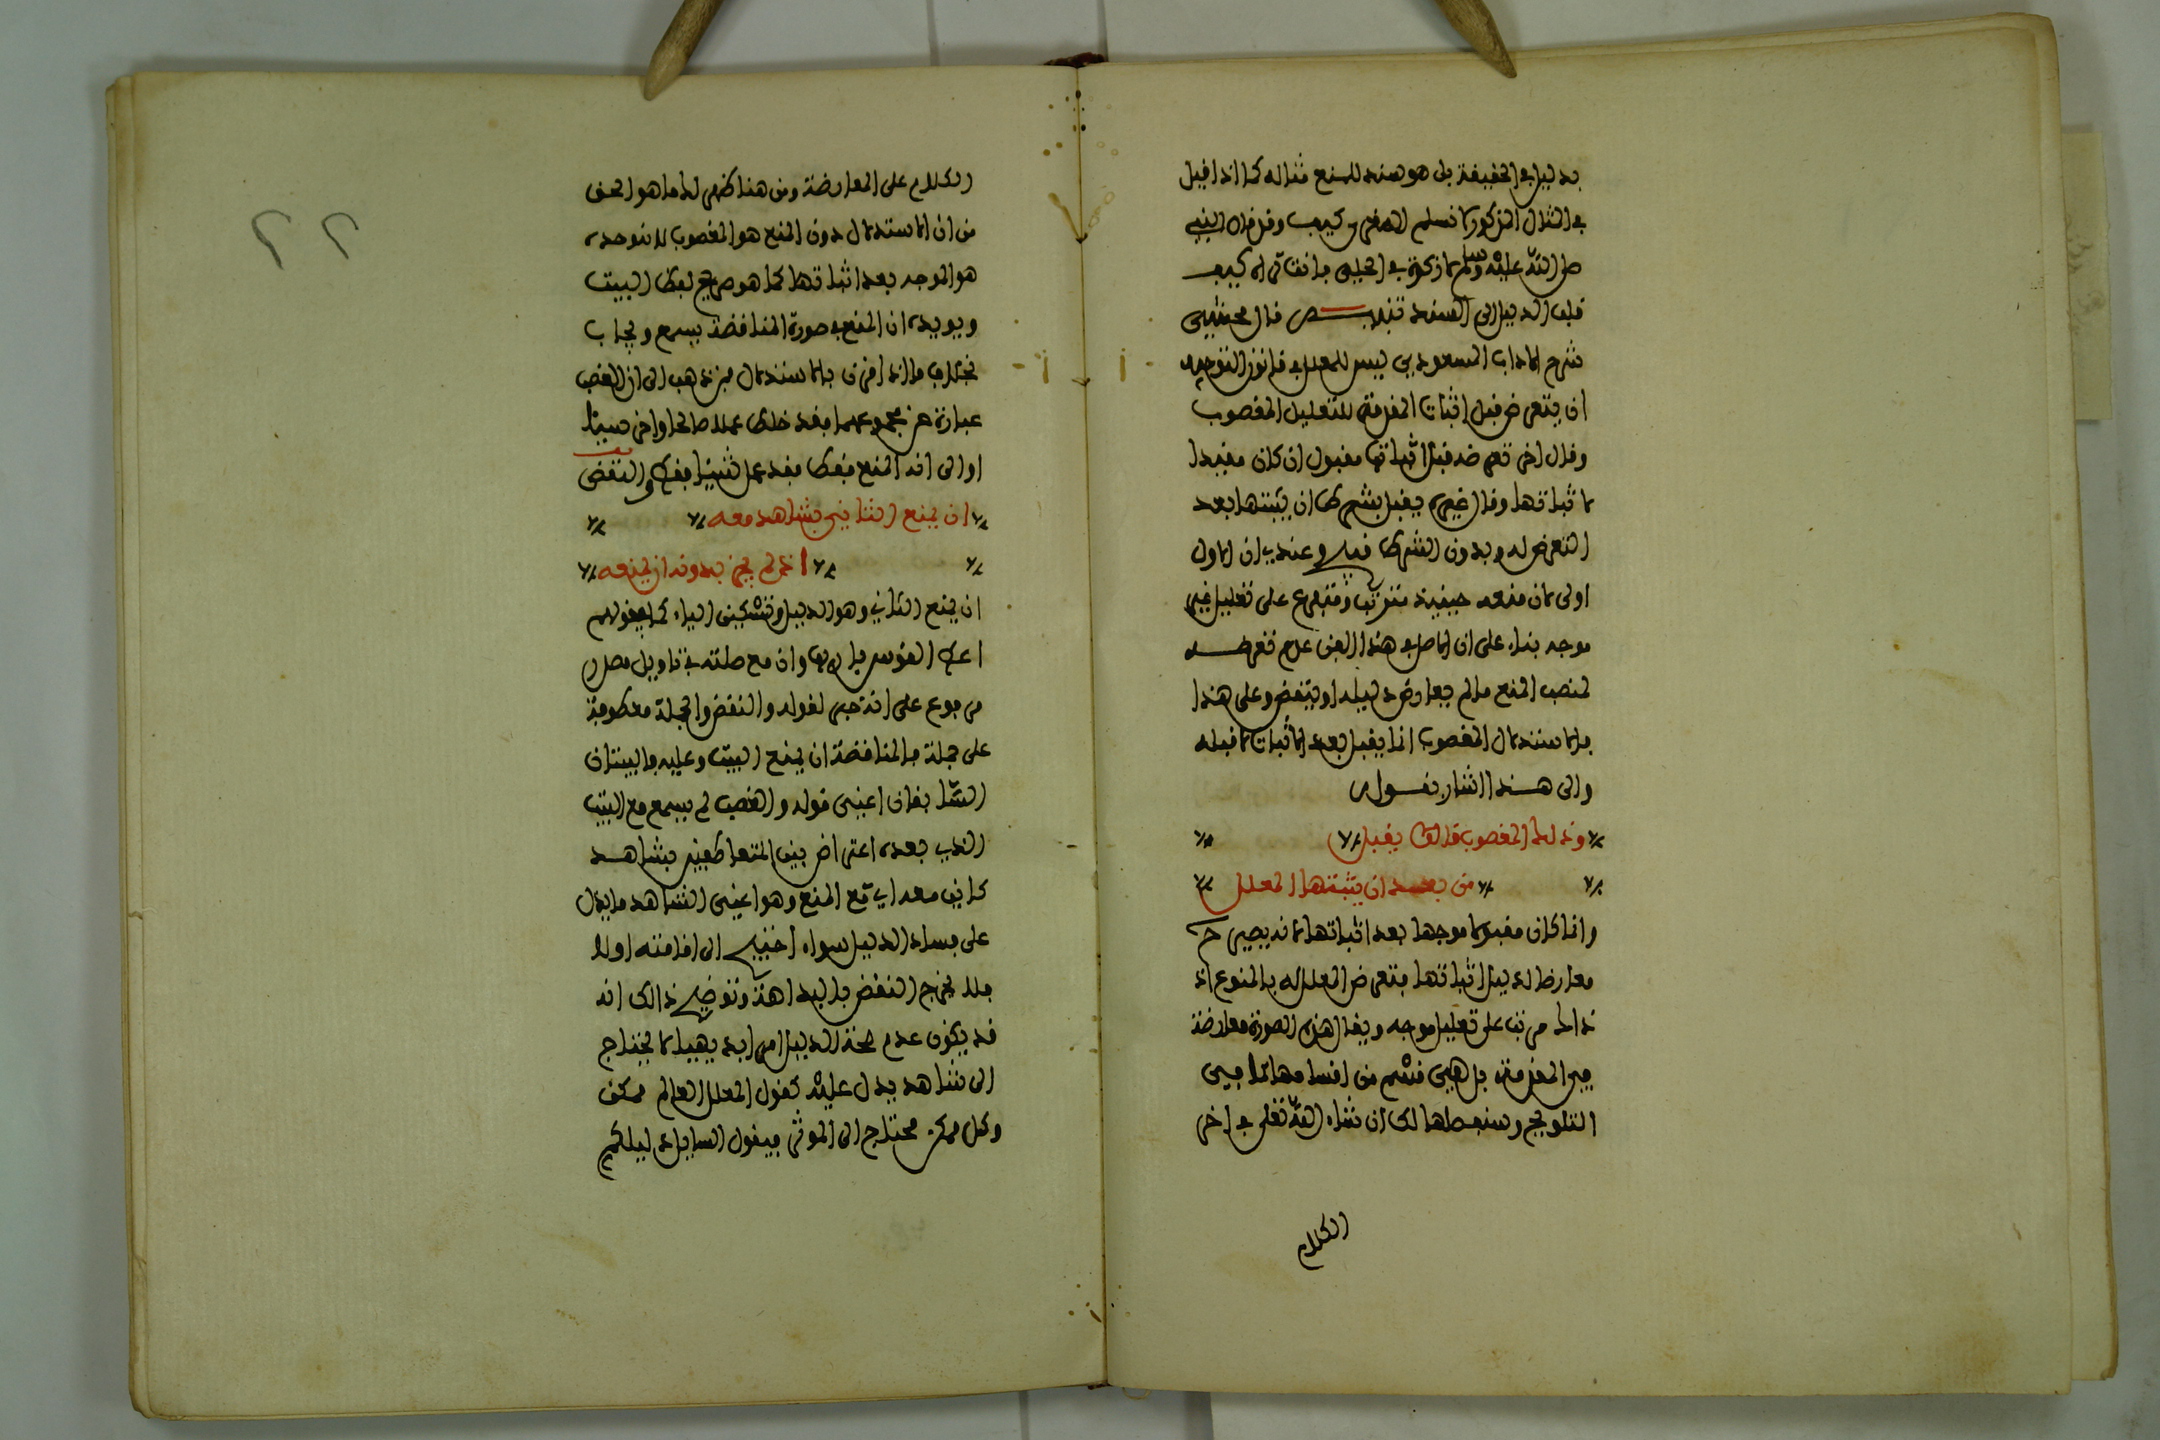 بدليل في الحقيقة بل هو سند للمنع مثاله كما اذا قيل
في المثال المذكور لا نسلم الصغرى وكيف وقد قال النبي
صلى الله عليه وسلم لا زكوة في الحلي فانقاله كيف
قلب الدليل الى السند تنبيه قال محشي
شرح الاداب المسعودي ليس للمعلل في قانون التوجيه
ان يتعرض قبل اثبات المقدمة للتعليل المغصوب
وقال اخر تعرضه قبل اثباتها مقبول ان كان مفيدا
لاثباتها وقال غيره يقبل بشرط ان يثبتها بعد
التعرض له وبدون الشرط فيه وعندي ان الاول
اولى لان منعه حينيذ مترتب ومتفرع على تعليل غير
موجه بناء على ان الاصل في هذا الفن عدم تعرضه
لمنصب المنع ما لم يعارض دليله او ينتقض وعلى هذا
فالاستدلال المغصوب انما يقبل بعد الاثبات لا قبله
والى هذا اشار بقوله
وذلك المغصوب قالوا يقبل
من بعد ان يثبتها المعلل
وانما كان مقبولا موجها بعد اثباتها لانه يصير ح
معارضا لدليل اثباتها فتعرض المعلل له بالمنوع اذ
ذاك مرتب على تعليل موجه ويقال لهذه الصورة معارضة
في المقدمة بل هي قسم من اقسامها كما في
التلويح وسنبسطها لك ان شاء الله تعلى في اخر
الكلام
الكلام على المعارضة ومن هنا ظهر لك ما هو الحق
من ان الاستدلال دون المنع هو المغصوب لانه وحده
هو الموجه بعد اثباتها كما هو صريح لفظ البيت
ويويده ان المنع في صورة المناقضة يسمع ويجاب
بخلاف ما اذا قرن بالاستدلال فمن ذهب الى ان الغصب
عبارة عن مجموعهما فقد خلط عملا صالحا واخر سيئا
او الى انه المنع فقط فقد عمل شيئا فقط والنقض
ان يمنع الثاني بشاهد معه
اذ لم يجز بدونه ان يمنعه
ان يمنع الثاني وهو الدليل وتسكين الياء كما في قولهم
اعط القوس باريها وان مع صلته في تاويل مصدر
مرفوع على انه خبر لقوله والنقض والجملة معطوفة
على جملة فالمناقضة ان يمنع البيت وعليه فالبيتان
السابقان اعني قوله والغصب لم يسمع مع البيت
الذي بعده اعتراض بين المتعاطفين بشاهد
كاين معه اي مع المنع وهو اعني الشاهد ما يدل
على فساد الدليل سواء احتيج الى اقامته او لا
فلا يخرج النقض بالبداهة وتوضيح ذالك انه
قد يكون عدم صحة الدليل امرا بديهيا لا يحتاج
الى شاهد يدل عليه كقول المعلل العالم ممكن
وكل ممكن محتاج الى الموثر فيقول السايل دليلكم